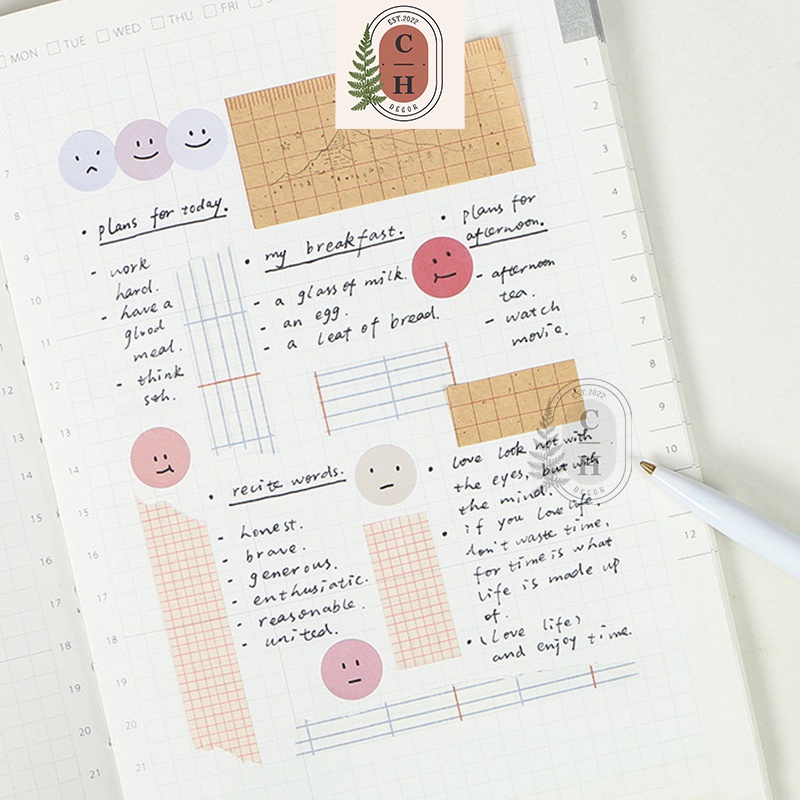 MON TUE WED THU FRI
EST.2022
C
H
DECOR
7
8
9
10
11
12
13
14
15
16
17
18
19
20
21
12
13
14
15
16
17
18
19
20
21
1
2
3
4
5
6
7
8
9
10
12
• plans for today.
- work
hard.
- have a
glood
meal.
- think
sth.
• my breakfast.
- a glass of milk.
- an egg.
- a leaf of bread.
• plans for
afternoon.
- afternoon
tea.
- watch
movie.
• recite words.
- honest.
- brave.
- generous.
- enthusiatic.
- reasonable.
- united.
• love look not with
the eyes, but with
the mind.
• if you love life,
don't waste time,
for time is what
life is made up
of.
• (Love life)
and enjoy time.
EST.2022
C
H
DECOR